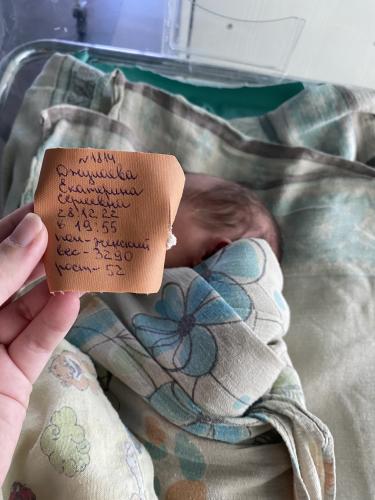 №1814
Джумаева
Екатерина
Сергеевна
28.12.22
в 19.55
пол-женский
вес-3290
рост-52